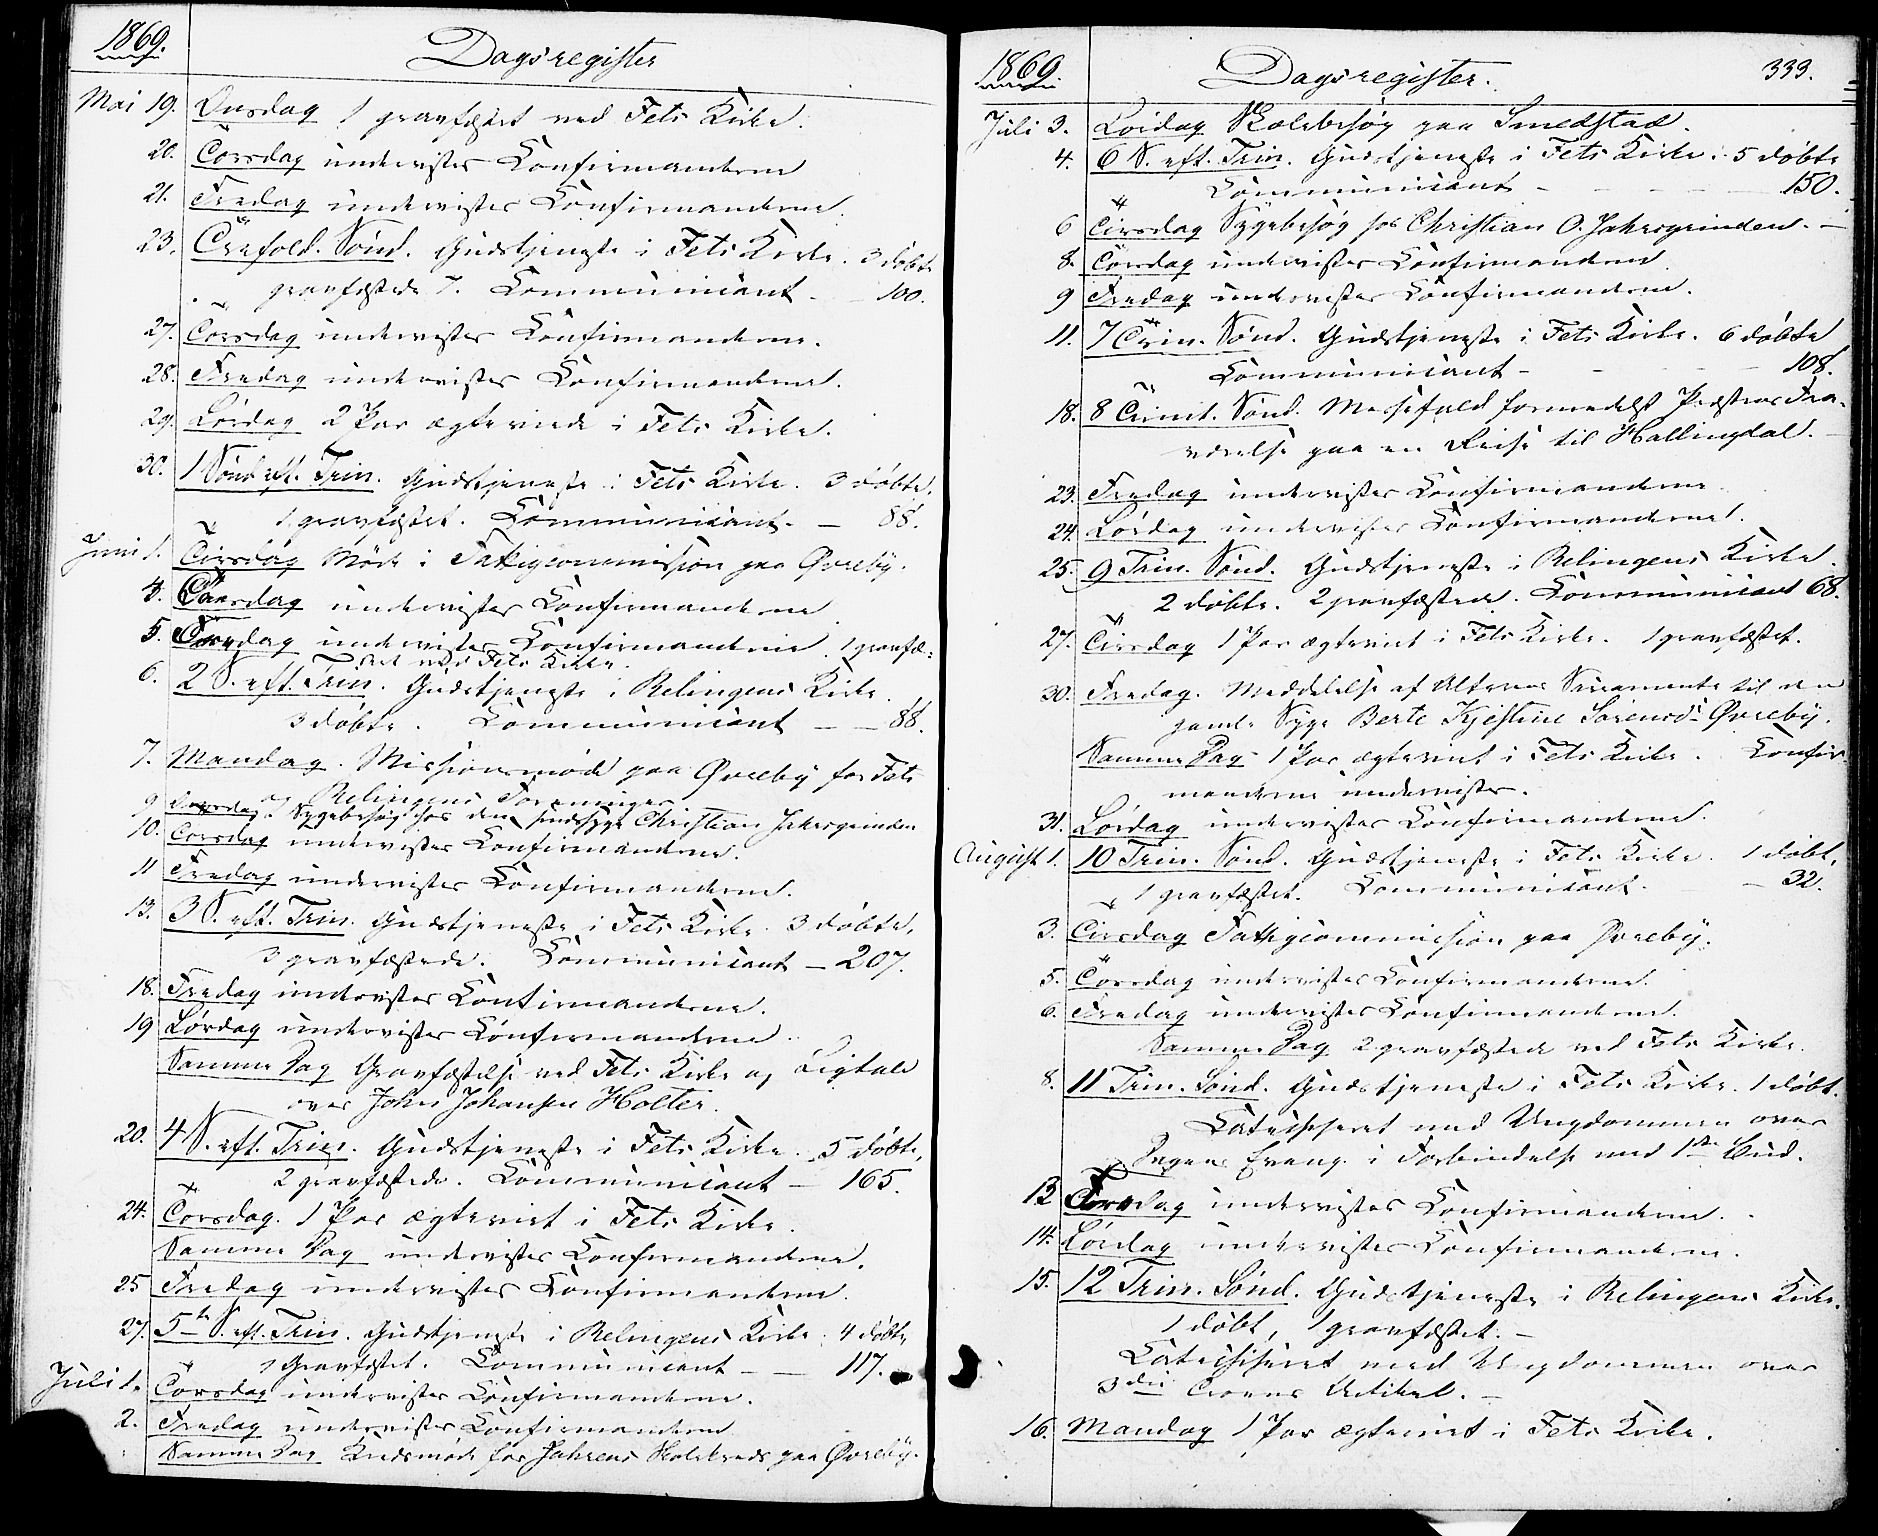 1869. Dagsregister
Mai 19. Onsdag 1 gravfæstet ved Fets Kirke.
20. Torsdag undervistes Confirmanderne
21. Fredag undervistes Confirmanderne.
23. Trefold. Sønd. Gudstjeneste i Fets Kirke. 3 døbte
gravfæstede 7. Communicant. — 100.
27. Torsdag undervistes Confirmanderne.
28. Fredag undervistes Confirmanderne.
29. Lørdag 2 Par ægteviede i Fets Kirke.
30. 1 Sønd. eft. Trin. Gudstjeneste i Fets Kirke. 3 døbte,
1 gravfæstet. Communicant. — 88.
Juni 1. Tirsdag Møde i Fattigcommission paa Øvreby.
Torsdag undervistes Confirmanderne
5. undervistes Confirmanderne. 1 gravfæ-
stet ved Fets Kirke.
6. 2 S. eft. Trin. Gudstjeneste i Relingens Kirke.
3 døbte. Communicant — — 88.
7. Mandag. Missionsmøde paa Øvreby for Fets
og Relingens Foreninger
9 Sygebesøg hos den sindssyge Christian Jahrsgrinden
10. Torsdag undervistes Confirmanderne.
11 Fredag undervistes Confirmanderne.
13. 3 S. eft. Trin. Gudstjeneste i Fets Kirke. 3 døbte,
3 gravfæstede. Communicant — 207.
18. Fredag undervistes Confirmanderne.
19 Lørdag undervistes Confirmanderne.
Samme Dag Gravfæstelse ved Fets Kirke og Ligtale
over John Johansen Holter.
20. 4 S. eft. Trin. Gudstjeneste i Fets Kirke. 5 døbte,
2 gravfæstede. Communicant — 165.
24. Torsdag. 1 Par ægteviet i Fets Kirke.
Samme Dag undervistes Confirmanderne.
25 Fredag undervistes Confirmanderne.
27. 5te S. eft. Trin. Gudstjeneste i Relingens Kirke. 4 døbte
1 Gravfæstet. Communicant — — 117.
Juli 1. Torsdag undervistes Confirmanderne.
2. Fredag undervistes Confirmanderne
Samme Dag Kredsmøde for Jahrens Skolekreds paa Øvreby.
1869. Dagsregister. 333.
Juli 3. Lørdag Skolebesøg paa Smedstad.
4. 6 S. eft. Trin. Gudstjeneste i Fets Kirke. 5 døbte
Communicant — — — 150.
6 Tirsdag Sygebesøg hos Christian O. Jahrsgrinden. —
8. Torsdag undervistes Confirmanderne.
9 Fredag undervistes Confirmanderne.
11. 7 Trin. Sønd. Gudstjeneste i Fets Kirke. 6 døbte
Communicant — — — 108.
18. 8 Trinit. Sønd. Messefald formedelst Præstens Fra-
værelse paa en Reise til Hallingdal.
23. Fredag undervistes Confirmanderne
24. Lørdag undervistes Confirmanderne.
25. 9 Trin. Sønd. Gudstjeneste i Relingens Kirke.
2 døbte. 2 gravfæstede. Communicant 68.
27. Tirsdag 1 Par ægteviet i Fets Kirke. 1 gravfæstet.
30. Fredag. Meddelelse af Alterens Sacramente til den
gamle Syge Berte Kjestine Sørensd. Øvreby.
Samme Dag 1 Par ægteviet i Fets Kirke. Confir-
manderne undervistes.
31. Lørdag undervistes Confirmanderne.
August 1. 10 Trin. Sønd. Gudstjeneste i Fets Kirke. 1 døbt,
1 gravfæstet. Communicant. — 32.
3. Tirsdag Fattigcommission paa Øvreby.
5. Torsdag undervistes Confirmanderne.
6. Fredag undervistes Confirmanderne.
Samme Dag 2 gravfæstede ved Fets Kirke.
8. 11 Trin. Sønd. Gudstjeneste i Fets Kirke. 1 døbt.
Catechiseret med Ungdommen over
Dagens Evang. i Forbindelse med 1ste Bud.
13 Fredag undervistes Confirmanderne.
14. Lørdag undervistes Confirmanderne.
15. 12 Trin. Sønd. Gudstjeneste i Relingens Kirke.
1 døbt, 1 gravfæstet. —
Catechiseret med Ungdommen over
3die Troens Artikel. —
16. Mandag 1 Par ægteviet i Fets Kirke.